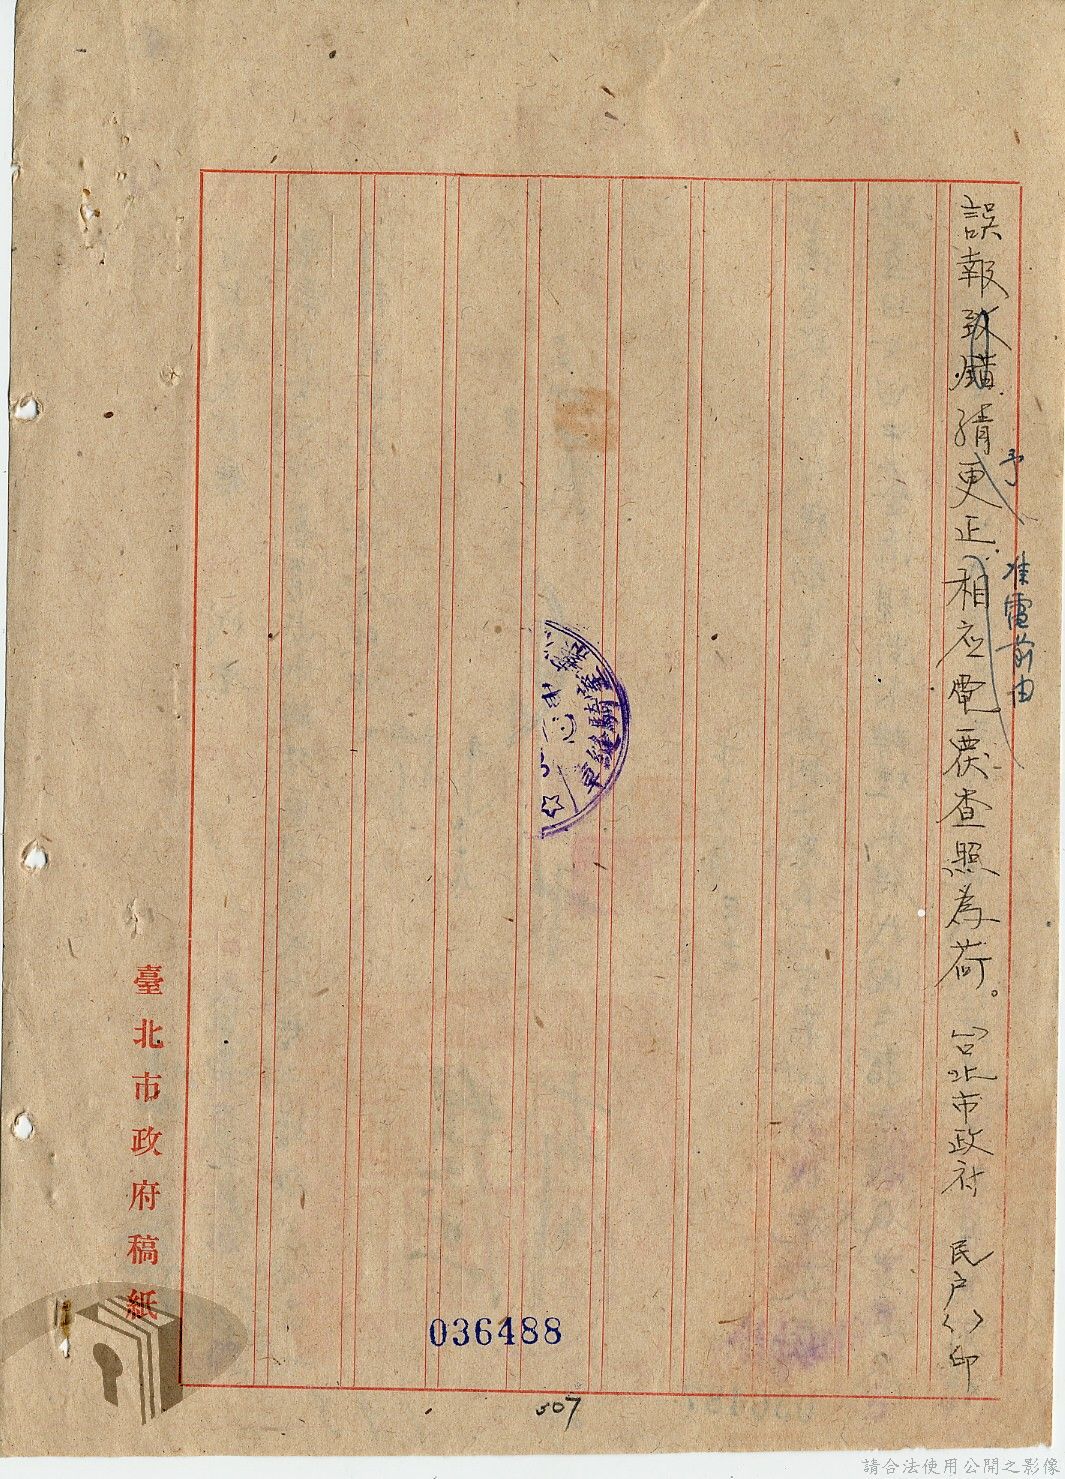 誤報致錯請更正相应電覆查照為荷。台北市政府 民户()印
予
准電前由
騎縫章
臺北市政府稿紙
036488
507
請合法使用公開之影像